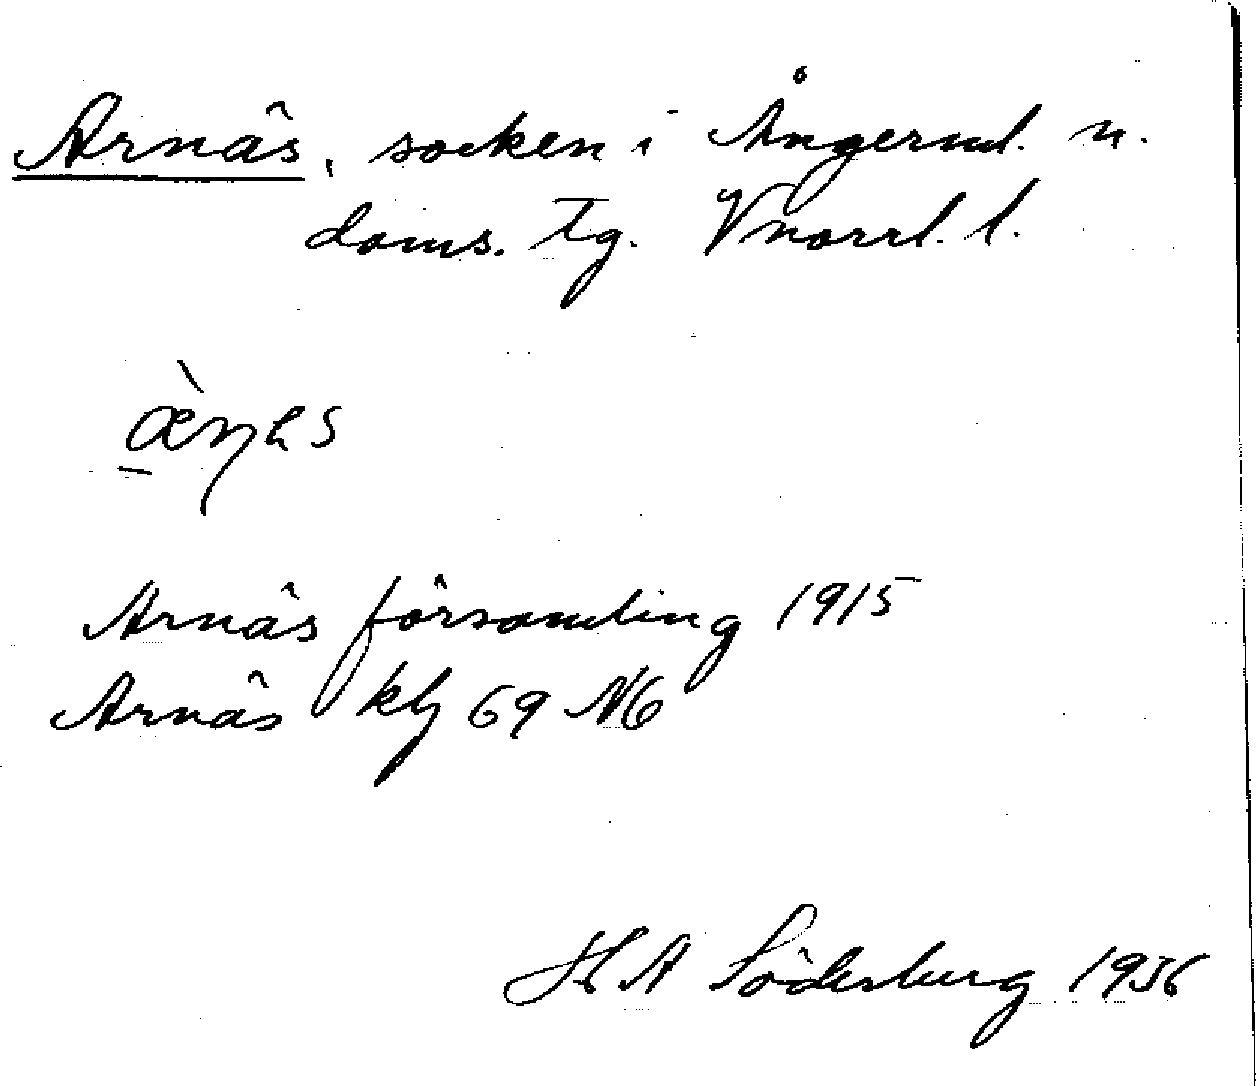 Arnäs, socken i Ångerml. n.
doms. tg. Vnorrl. l.
Arnäs församling 1915
Arnäs kbg 69 N6
H A Söderberg 1936